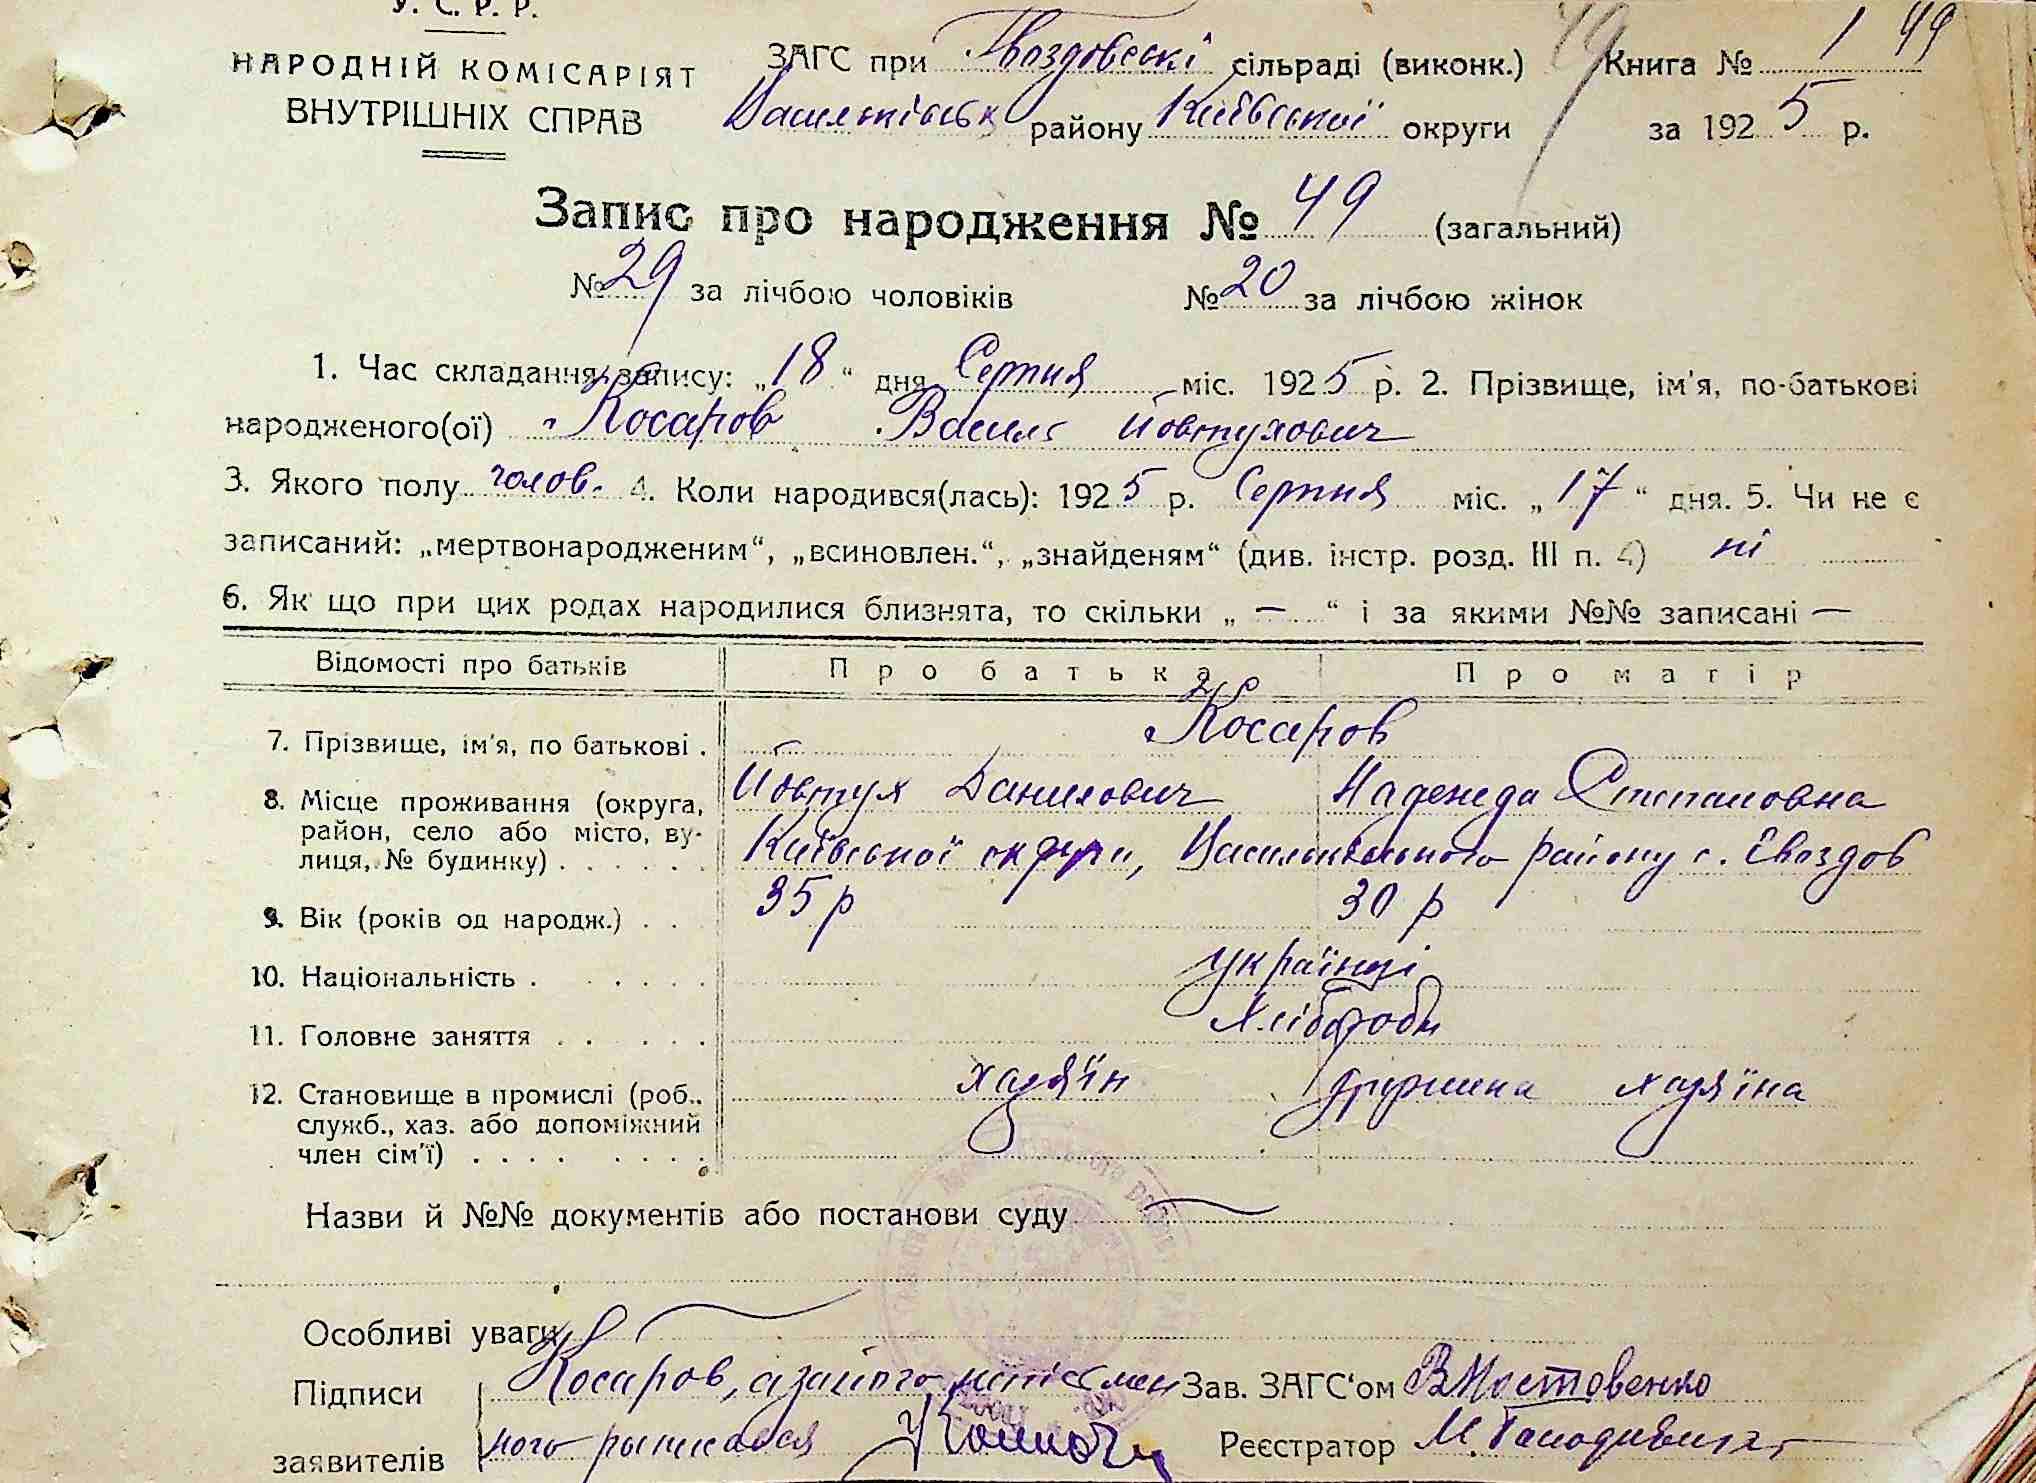 У. С. Р. Р.
НАРОДНІЙ КОМІСАРІЯТ
ВНУТРІШНІХ СПРАВ
ЗАГС при Гвоздовскі сільраді (виконк.) Книга № 1 49
49
Васильківськ району Київської округи за 1925 р.
Запис про народження № 49 (загальний)
№ 29 за лічбою чоловіків № 20 за лічбою жінок
1. Час складання запису: „18“ дня Серпня міс. 1925 р. 2. Прізвище, ім'я, по-батькові
народженого(ої) Косаров Василь Йовтухович
3. Якого полу чолов. 4. Коли народився(лась): 1925 р. Серпня міс. „17“ дня. 5. Чи не є
записаний: „мертвонародженим“, „всиновлен.“, „знайденям“ (див. інстр. розд. III п. 4) ні
6. Як що при цих родах народилися близнята, то скільки „ — “ і за якими №№ записані —
Відомості про батьків Про батька Про матір
7. Прізвище, ім'я, по батькові . Косаров
Йовтух Данилович Надежда Степановна
8. Місце проживання (округа,
район, село або місто, ву-
лиця, № будинку) . . . . . . Київської округи, Васильківського району с. Гвоздов
9. Вік (років од народж.) . . 35 р 30 р
10. Національність . . . . . . українці
11. Головне заняття . . . . . Хлібороби
12. Становище в промислі (роб.,
служб., хаз. або допоміжний
член сім'ї) . . . . . . . . хазяїн дружина хазяїна
Назви й №№ документів або постанови суду —
Особливі уваги
Підписи Косаров, а за його Зав. ЗАГС'ом В Мостовенко
заявителів ного росписався Реєстратор М.